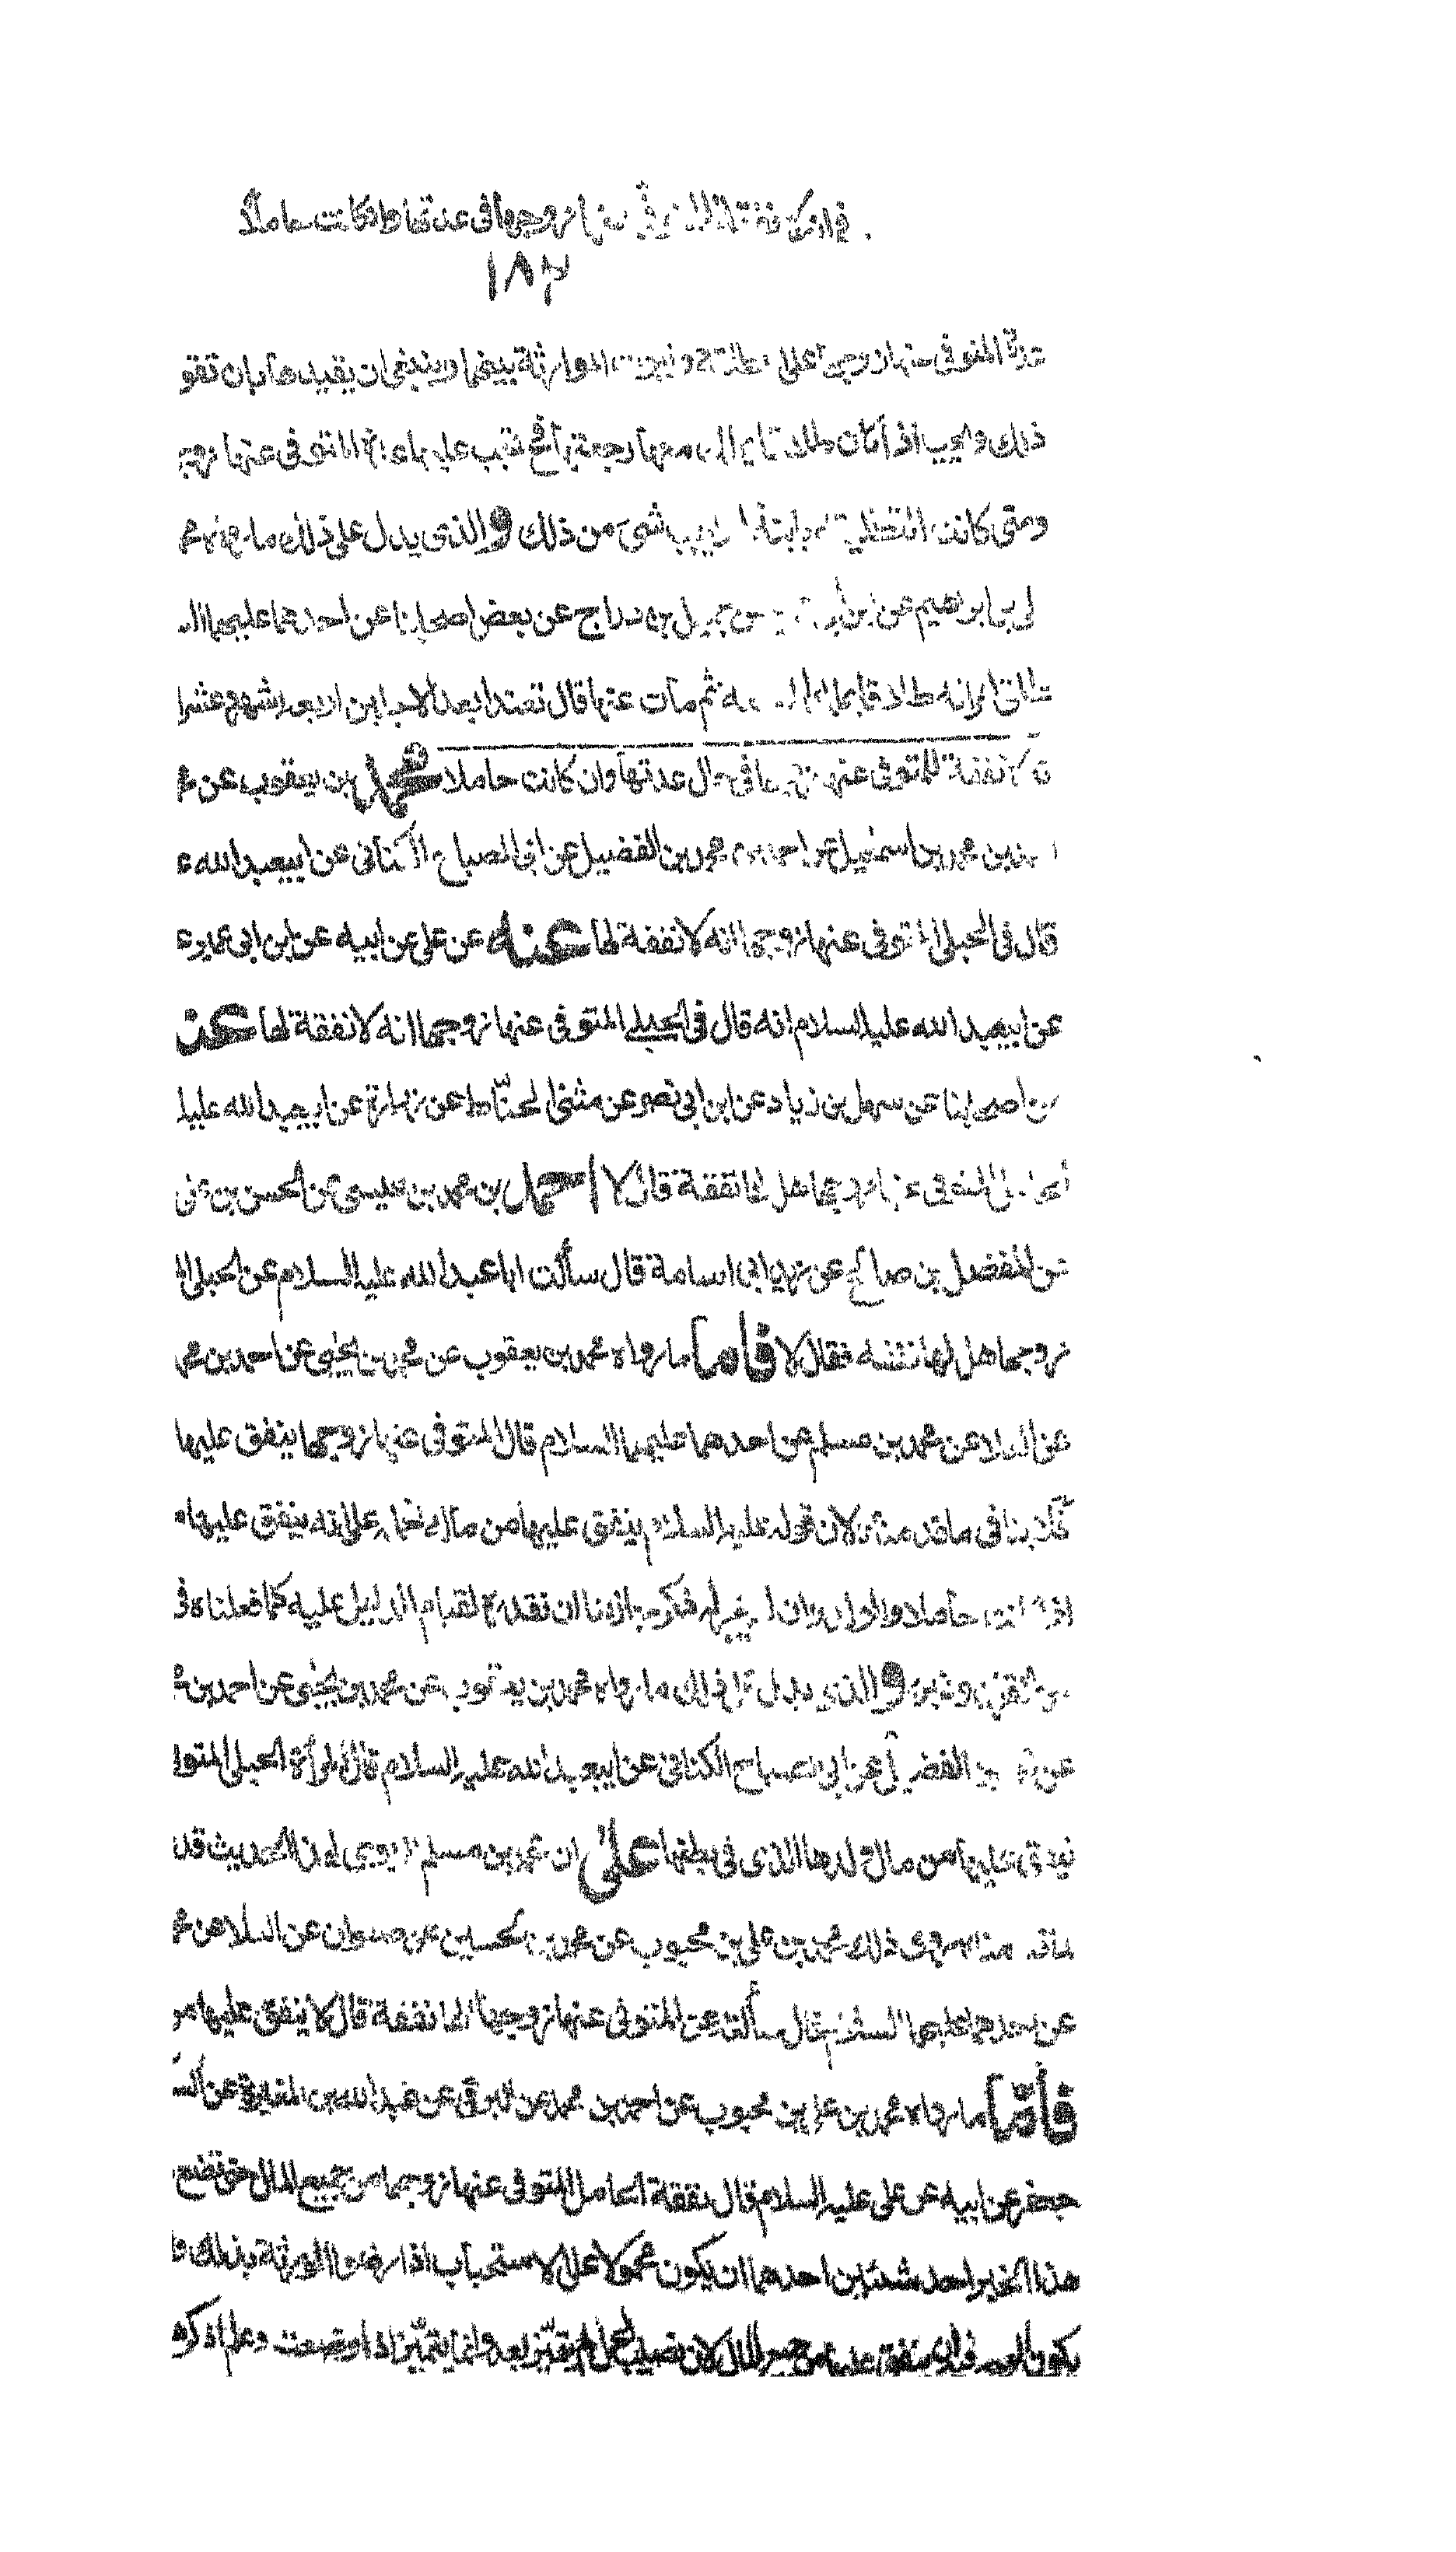 في انه لا نفقة للمتوفى عنها زوجها في عدتها وان كانت حاملا
١٨٢
عدة المتوفى عنها زوجها على المطلقة وثبوت الموارثة بينهما وينبغي ان يقيدها بان تقو
ذلك ويجب اذا كان طلاقا يملك معها رجعتها فح يجب عليها عدة المتوفى عنها زوجـ
ومتى كانت التطليقة باينة لم يجب شئ من ذلك والذى يدل على ذلك ما رواه مح
على بن ابراهيم عن ابن ابى عن جميل بن دراج عن بعض اصحابنا عن احدهما عليهما الـ
طلق امرأته طلاقا يملك الرجعة ثم مات عنها قال تعتد بابعد الاجلين اربعة اشهر وعشرا
ان لا نفقة للمتوفى عنها زوجها في حال عدتها وان كانت حاملا محمد بن يعقوب عن مح
محمد بن اسمعيل عن احمد بن محمد بن الفضيل عن ابى الصباح الكنانى عن ابيعبد الله ع
قال في الحبلى المتوفى عنها زوجها انه لا نفقة لها عنه عن على عن ابيه عن ابن ابى عمير ع
عن ابيعبد الله عليه السلام انه قال في الحبلى المتوفى عنها زوجها انه لا نفقة لها عن
من اصحابنا عن سهل بن زياد عن ابن ابى نصر عن مثنى الحناط عن زرارة عن ابيعبد الله عليه
المرأة الحبلى المتوفى عنها زوجها هل لها نفقة قال لا احمد بن محمد بن عيسى عن الحسن بن على
عن المفضل بن صالح عن زيد ابى اسامة قال سألت ابا عبد الله عليه السلام عن الحبلى الـ
زوجها هل لها نفقة فقال لا فاما ما رواه محمد بن يعقوب عن محمد بن يحيى عن احمد بن مح
عن العلا عن محمد بن مسلم عن احدهما عليهما السلام قال المتوفى عنها زوجها ينفق عليها
فلا ينافى ما قدمناه لان قوله عليه السلام ينفق عليها من ماله نحمله على انه ينفق عليها م
اذا كانت حاملا والولد وان لم يجر له ذكر جاز لنا ان نقدره لقيام الدليل عليه كما فعلناه في
من القرآن وغيره والذى يدل على ذلك ما رواه محمد بن يعقوب عن محمد بن يحيى عن احمد بن مـ
عن محمد بن الفضيل عن ابى الصباح الكنانى عن ابيعبد الله عليه السلام قال المرأة الحبلى المتو
ينفق عليها من مال ولدها الذى في بطنها على ان محمد بن مسلم روى هذا الحديث قد
لما قدمناه روى ذلك محمد بن على بن محبوب عن محمد بن الحسين عن صفوان عن العلا عن مح
عن احدهما عليهما السلام قال سألته عن المتوفى عنها زوجها الها نفقة قال لا ينفق عليها من
فاما ما رواه محمد بن على بن محبوب عن احمد بن محمد عن البرقى عن عبد الله بن المغيرة عن السـ
جعفر عن ابيه عن على عليه السلام قال نفقة الحامل المتوفى عنها زوجها من جميع المال حتى تضع
هذا الخبر احد شيئين احدهما ان يكون محمولا على الاستحباب اذا رضوا الورثة بذلك و
يكون الوجه في ان ينفق عليها من جميع المال لان نصيب الحمل لم يتميز بعد وانما يتميز اذا وضعت وعلم اذكر هو